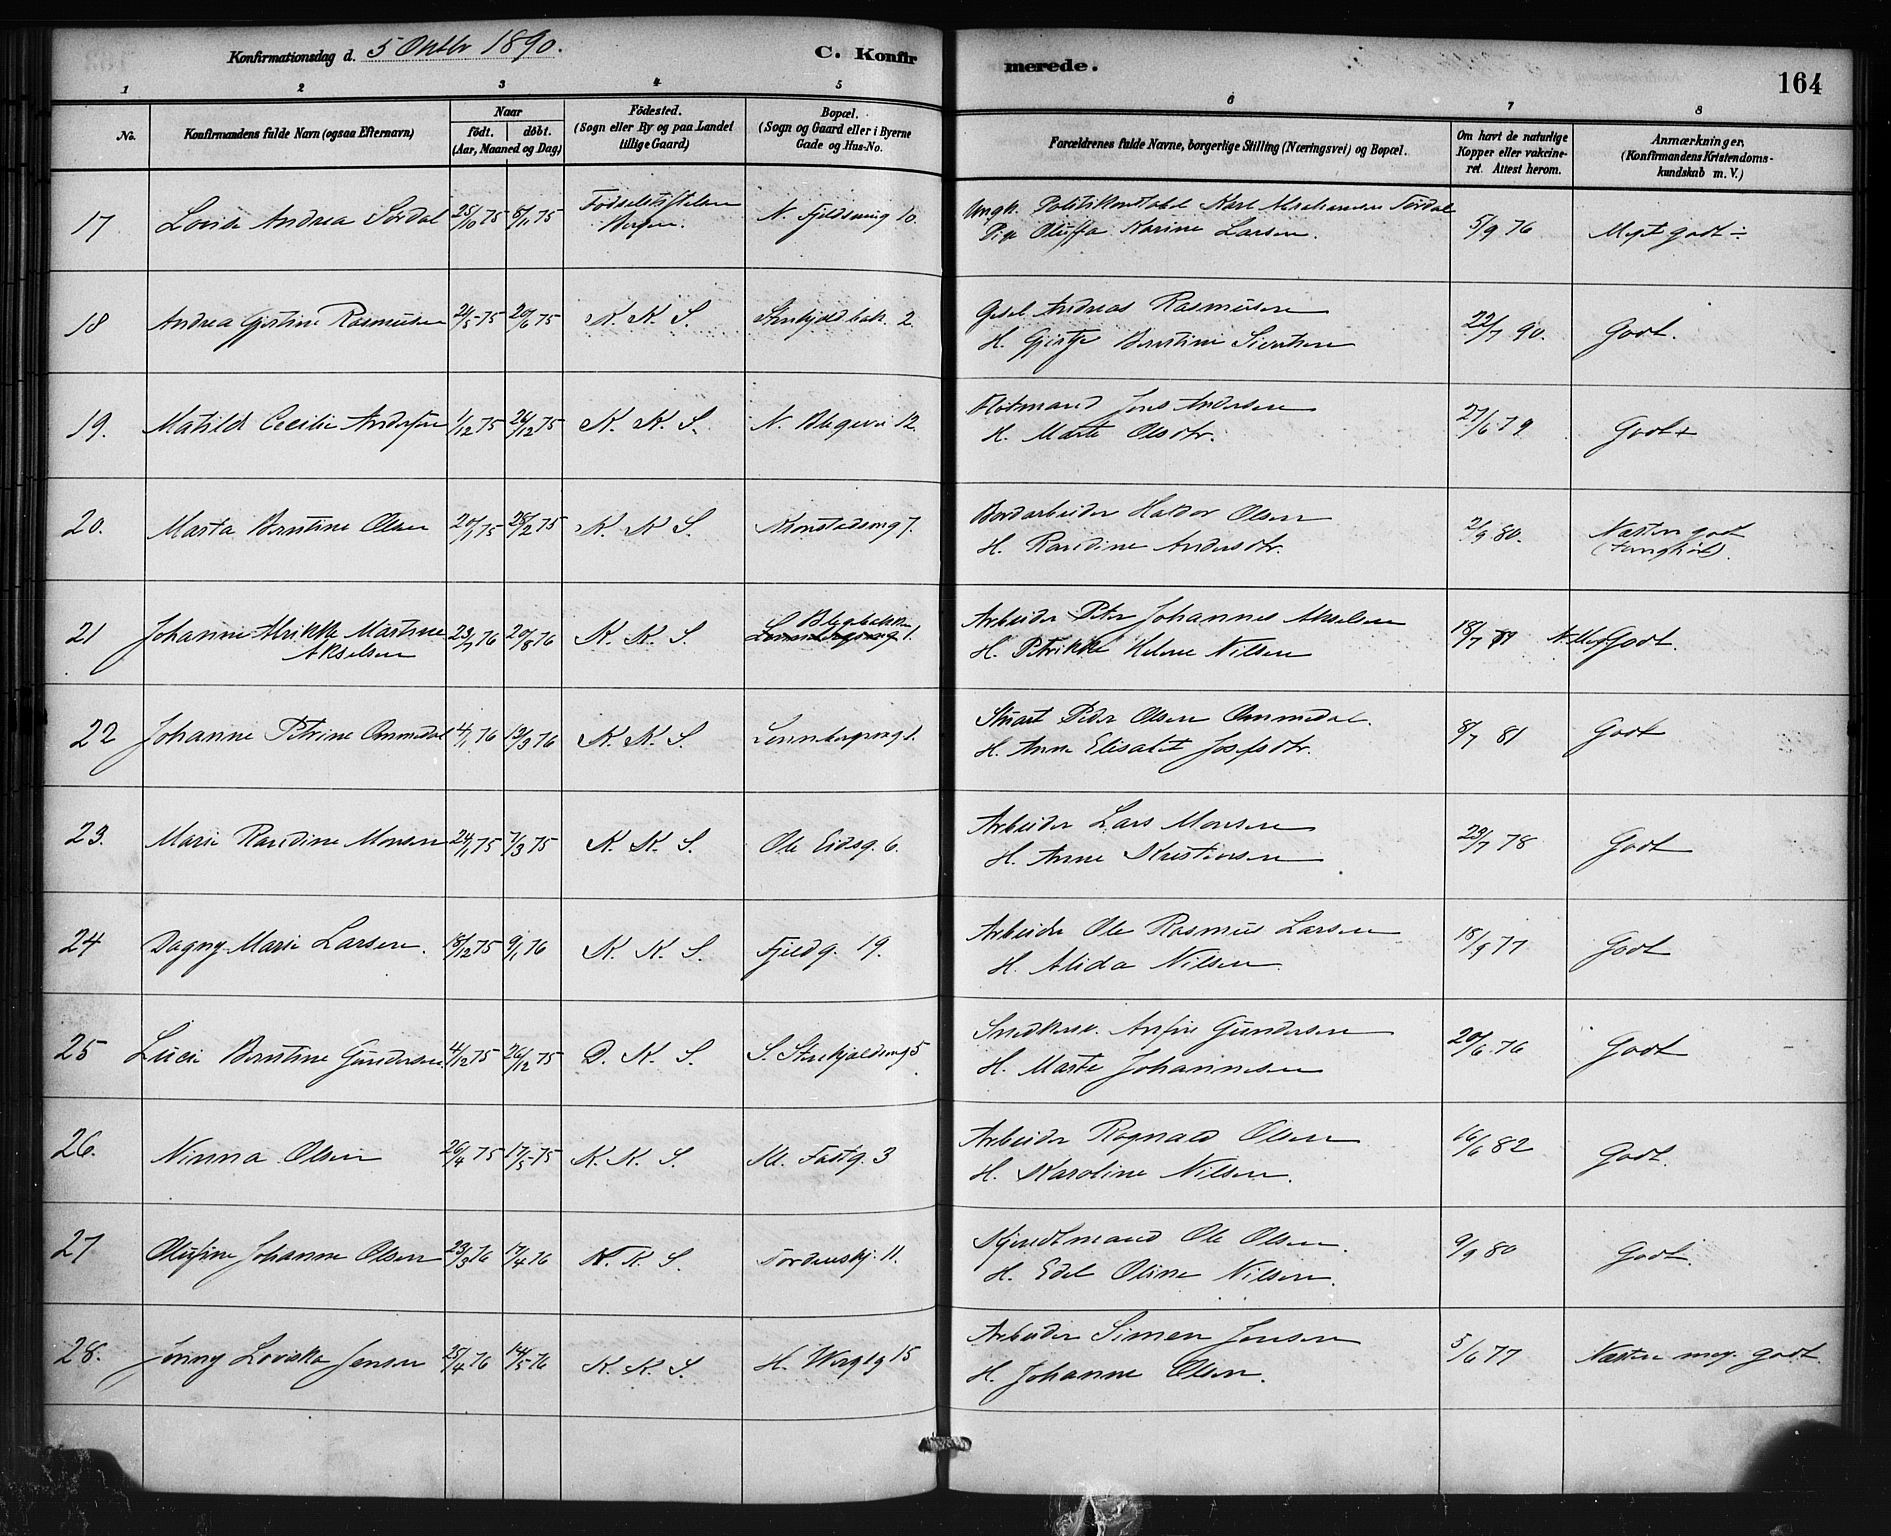 Konfirmationsdag d. 5 Oktbr 1890.
C. Konfir
merede.
164
1 2 3 4 5 6 7 8
No.
Konfirmandens fulde Navn (ogsaa Efternavn)
Naar
födt. döbt.
(Aar, Maaned og Dag)
Födested.
(Sogn eller By og paa Landet
tillige Gaard)
Bopæl.
(Sogn og Gaard eller i Byerne
Gade og Hus-No.
Forældrenes fulde Navne, borgerlige Stilling (Næringsvei) og Bopæl.
Om havt de naturlige
Kopper eller vakcine-
ret. Attest herom.
Anmærkninger,
(Konfirmandens Kristendoms-
kundskab m. V.)
17 Lovise Andrea Sördal 25/10 75 5/11 75 Födselsstiftelsen
Bergen. N. Fjeldsmug 10.
Ungk. Politikonstabel Abrahamsen Sördal
Pige Oluffa Karine Larsen. 5/9 76 Meget godt ÷
18 Andrea Gjertine Rasmusen 24/5 75 20/6 75 K. K. S. Stenkjeldbak. 2.
Gesel Andreas Rasmusen
H. Gjertje Berntine Sivertsen 22/7 90. Godt.
19. Matild Cecilie Andersen 1/12 75 26/12 75 K. K. S. N. Blegevei 12
Flötmand Jens Andersen
H. Marte Olsdtr. 27/6 79 Godt +
20. Marta Berntine Olsen 20/1 75 28/2 75 K. K. S. Kronstadsmug 7.
Bordarbeider Haldor Olsen
H. Randine Andersdtr. 2/9 80. Næsten godt
(tunghör).
21 Johanne Alrikke Martine
Akselsen 23/7 76 20/8 76 K. K. S. Blegbakken
1.
Arbeider Peter Johannes Akselsen
H. Petrikke Helene Nilsen 18/7 81 Godt.
22 Johanne Petrine Ommedal 4/1 76 12/3 76 K. K. S. Lennbergsmug 1.
Stuart Peder Olsen Ommedal.
H. Anne Elisabet Josefsdtr. 8/7 81 Godt
23. Marie Randine Monsen 24/1 75 7/3 75 K. K. S. Ole Eidsg. 6.
Arbeider Lars Monsen
H. Anne Kristiansen 23/7 78 Godt
24 Dagny Marie Larsen. 18/12 75 9/1 76 K. K. S. Fjeldg. 19.
Arbeider Ole Rasmus Larsen
H. Alida Nilsen. 18/9 77 Godt
25 Lucie Berntine Gundersen. 4/12 75 26/12 75 D. K. S. S. Stenkjeldsmug 5
Snedkersv. Arfin Gundersen
H. Marte Johannesen 20/6 76 Godt
26. Ninna Olsen 26/4 75 17/5 75 K. K. S. Kl. Fostg. 3
Arbeider Rognald Olsen
H. Karoline Nilsen. 16/6 82 Godt.
27 Olufine Johanne Olsen 23/3 76 17/4 76 K. K. S. Tordenskj. 11.
Kjendtmand Ole Olsen.
H. Edel Oline Nilsen. 9/9 80 Godt.
28. Jenny Loviska Jensen 25/4 76 14/5 76 K. K. S. H. 15
Arbeider Simen Jensen
H. Johanne Olsen. 5/6 77 Næsten meg. godt.